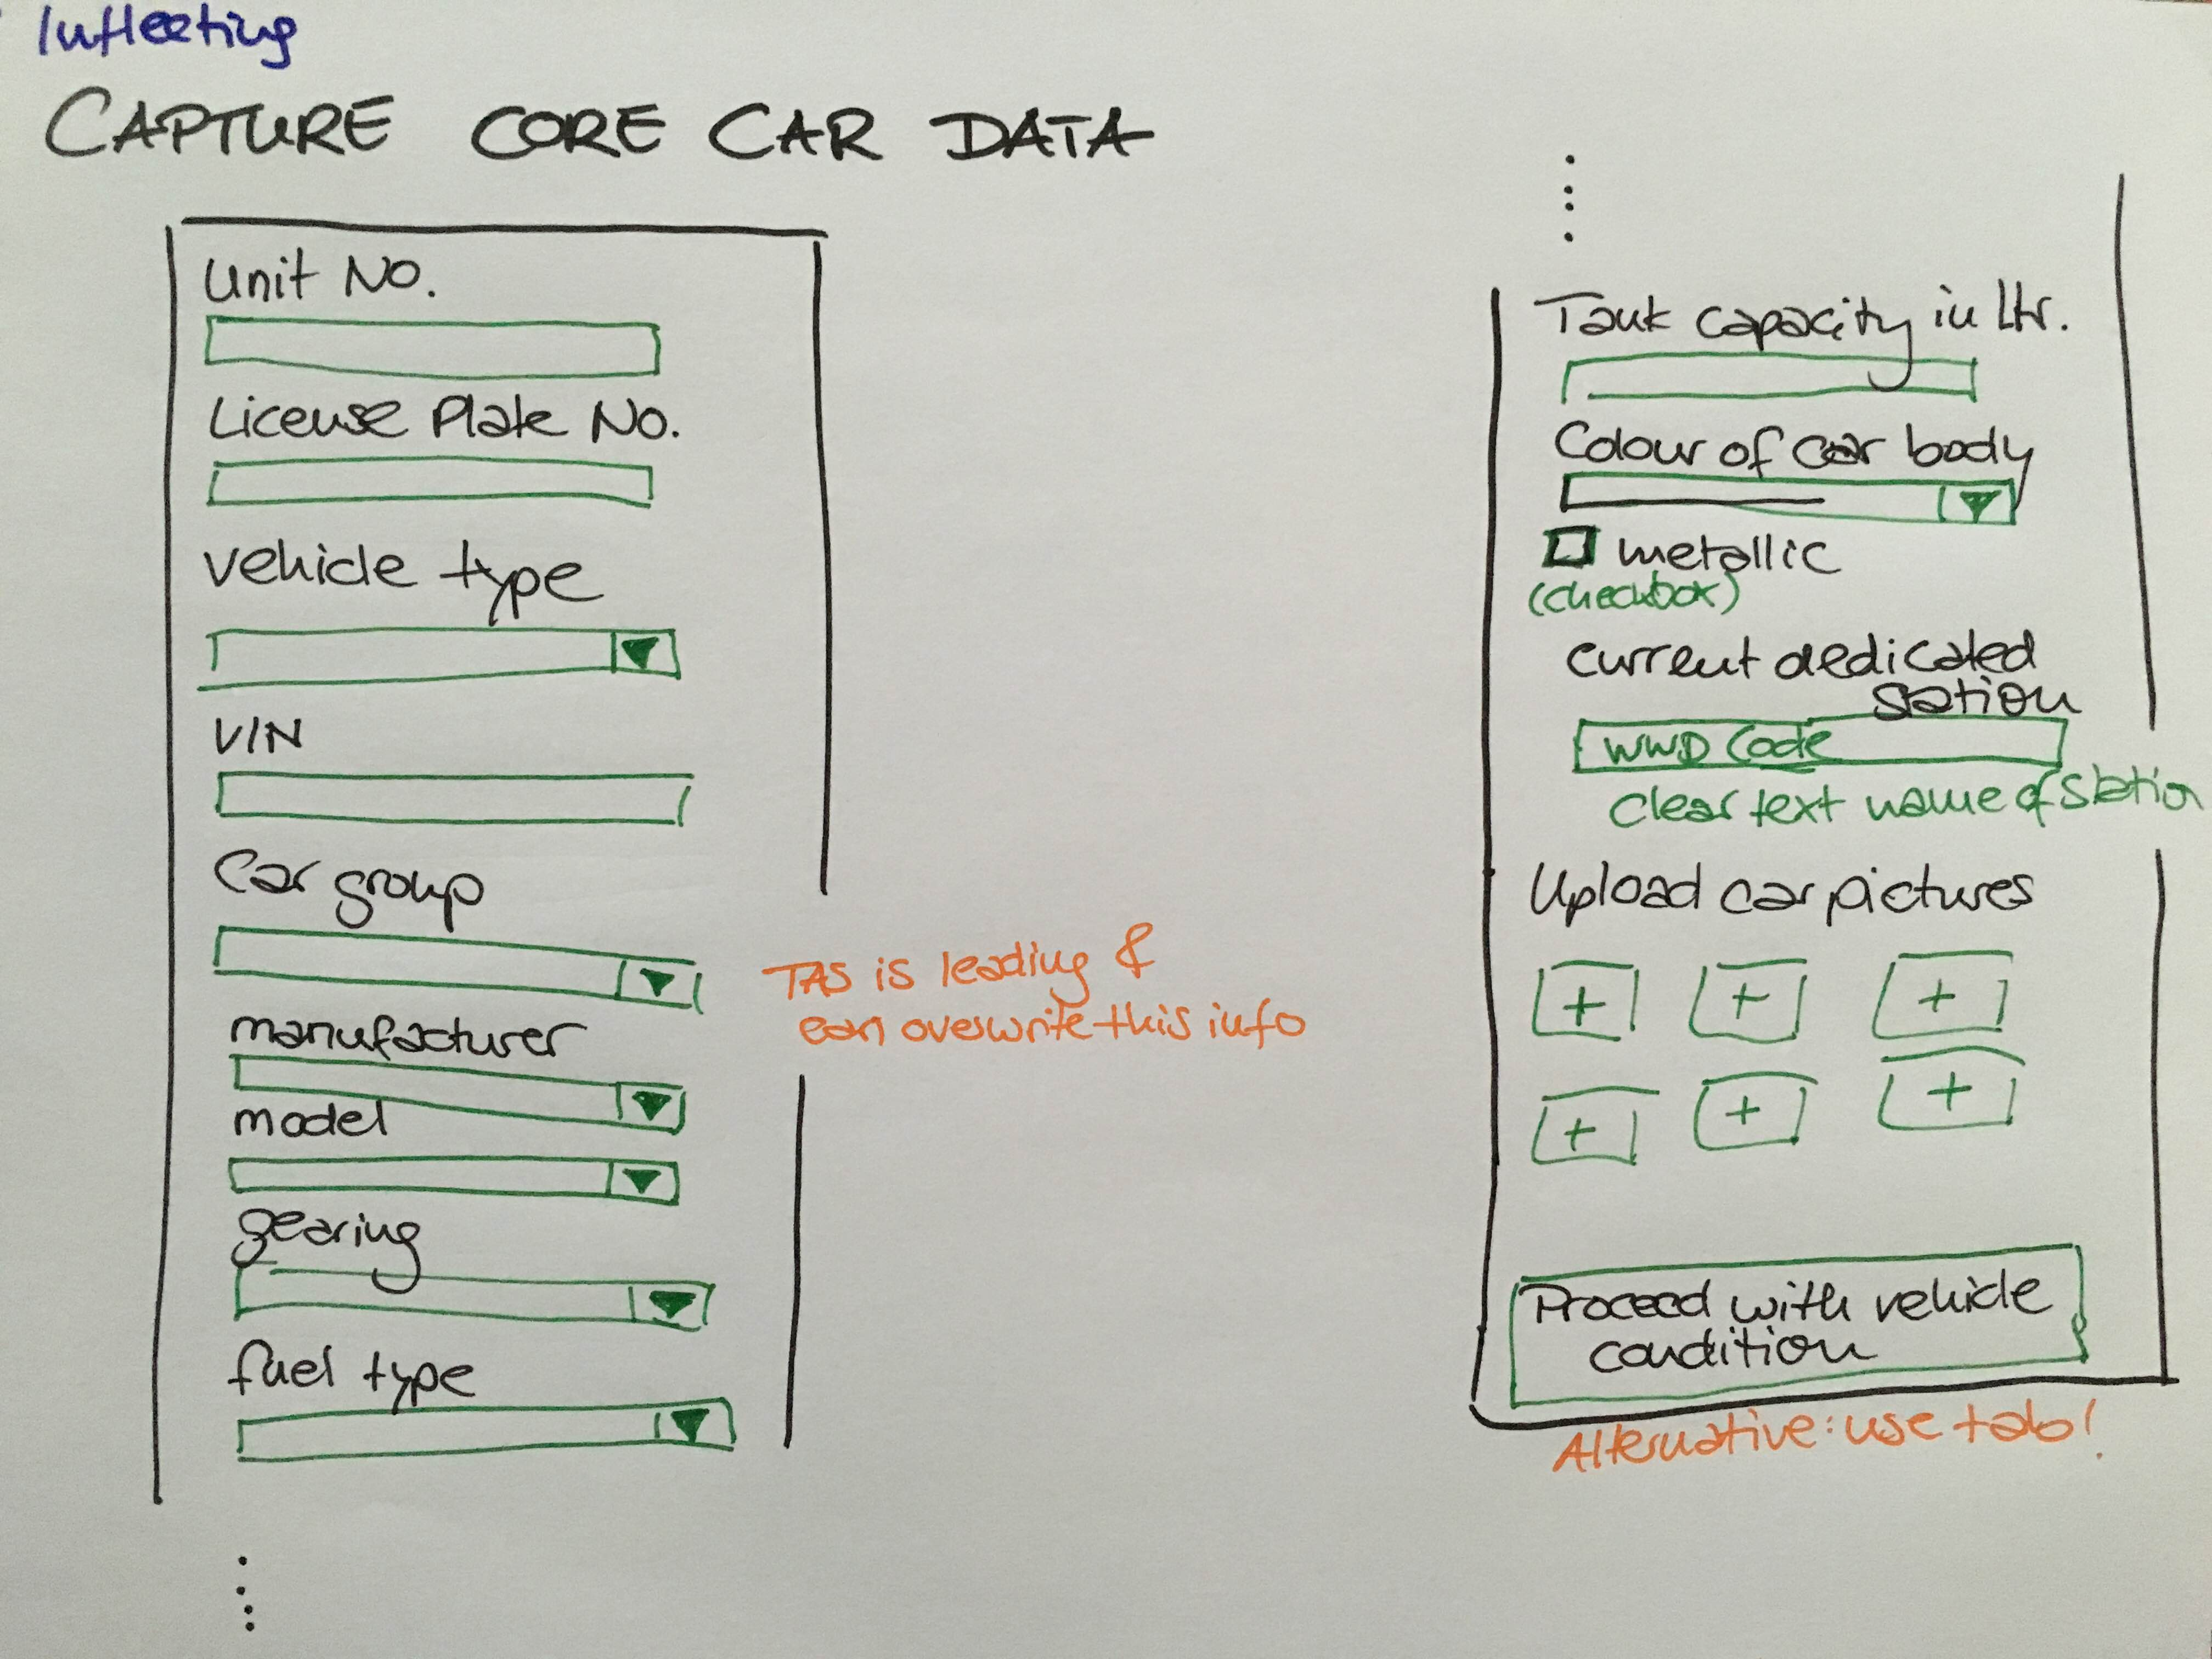 Infleeting
CAPTURE CORE CAR DATA
Unit No.
License Plate No.
vehicle type
VIN
Car group
TAS is leading &
can overwrite this info
manufacturer
model
gearing
fuel type
Tank capacity in ltr.
Colour of car body
metallic
(checkbox)
current dedicated
station
WWD Code
clear text name of station
Upload car pictures
+ + +
+ + +
Proceed with vehicle
condition
Alternative: use tab!